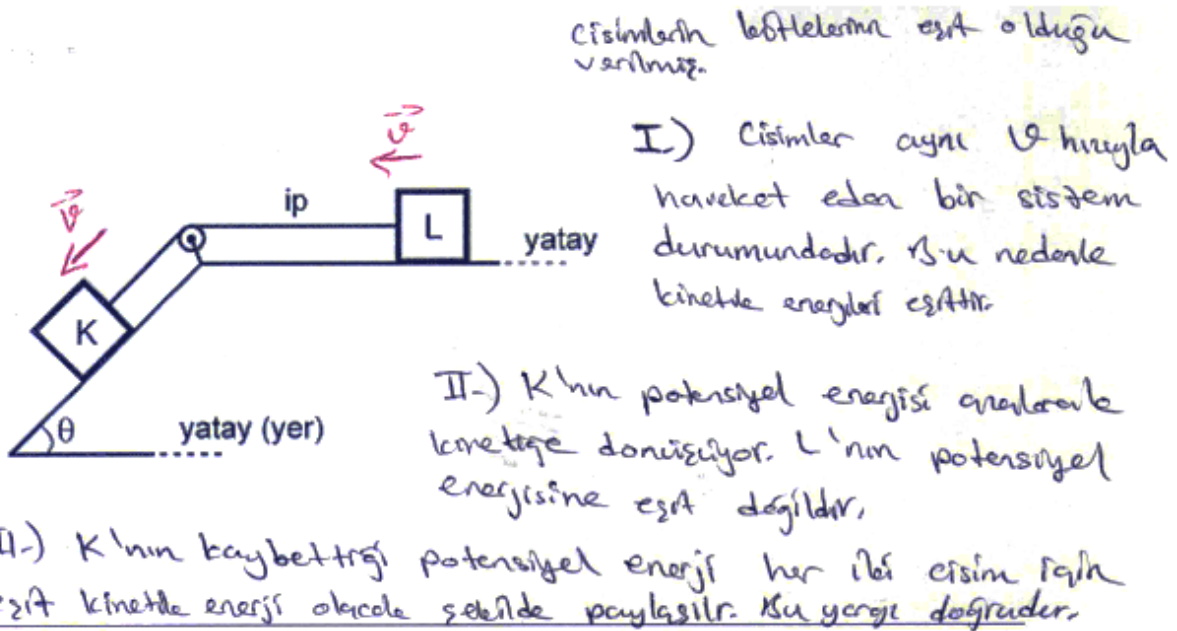 Cisimlerin kütlelerinin eşit olduğu
verilmiş.
I.) Cisimler aynı v hızıyla
hareket eden bir sistem
durumundadır. Bu nedenle
kinetik enerjileri eşittir.
v
v
ip
L
yatay
K
θ
yatay (yer)
II-) K'nın potensiyel enerjisi azalarak
kinetiğe dönüşüyor. L'nin potensiyel
enerjisine eşit değildir.
II-) K'nın kaybettiği potensiyel enerji her iki cisim için
eşit kinetik enerji olacak şekilde paylaşılır. Bu yargı doğrudur.